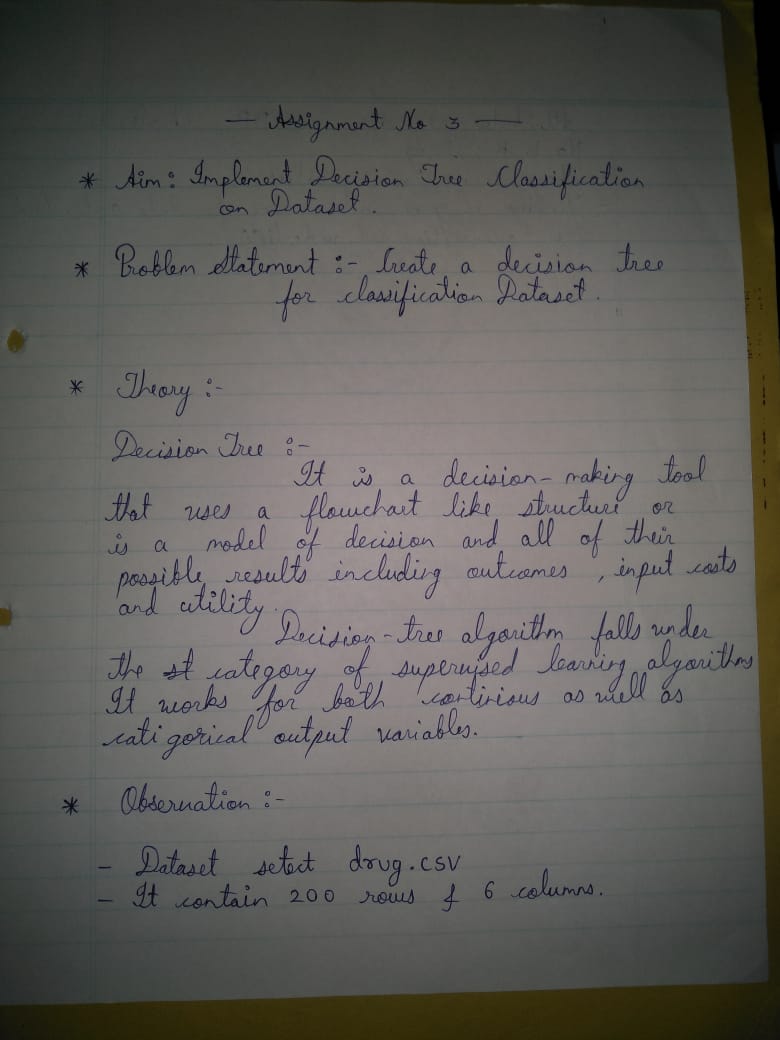 — Assignment No 3 —
* Aim: Implement Decision Tree Classification
on Dataset.
* Problem Statement :- Create a decision tree
for classification Dataset.
* Theory :-
Decision Tree :-
It is a decision-making tool
that uses a flowchart like structure or
is a model of decision and all of their
possible results including outcomes, input costs
and utility.
Decision-tree algorithm falls under
the category of supervised learning algorithms
It works for both continious as well as
catigorical output variables.
* Observation :-
- Dataset select drug.csv
- It contain 200 rows & 6 columns.